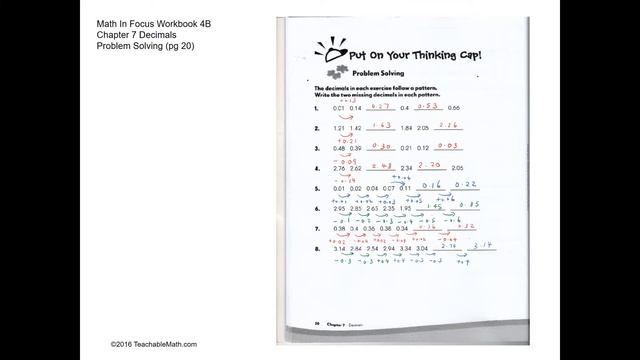 Math In Focus Workbook 4B
Chapter 7 Decimals
Problem Solving (pg 20)
Put On Your Thinking Cap!
Problem Solving
The decimals in each exercise follow a pattern.
Write the two missing decimals in each pattern.
+0.13
1. 0.01 0.14 0.27 0.4 0.53 0.66
2. 1.21 1.42 1.63 1.84 2.05 2.26
+0.21
3. 0.48 0.39 0.30 0.21 0.12 0.03
-0.09
4. 2.76 2.62 2.48 2.34 2.20 2.06
-0.14
+0.04
5. 0.01 0.02 0.04 0.07 0.11 0.16 0.22
+0.01 +0.02 +0.03 +0.05 +0.06
6. 2.95 2.85 2.65 2.35 1.95 1.45 0.85
-0.1 -0.2 -0.3 -0.4 -0.5 -0.6
7. 0.38 0.4 0.36 0.38 0.34 0.36 0.32
+0.02 -0.04 +0.02 -0.04 +0.02 -0.04
8. 3.14 2.84 2.54 2.94 3.34 3.04 2.74 3.14
-0.3 -0.3 +0.4 +0.4 -0.3 -0.3 +0.4
20 Chapter 7 Decimals
©2016 TeachableMath.com